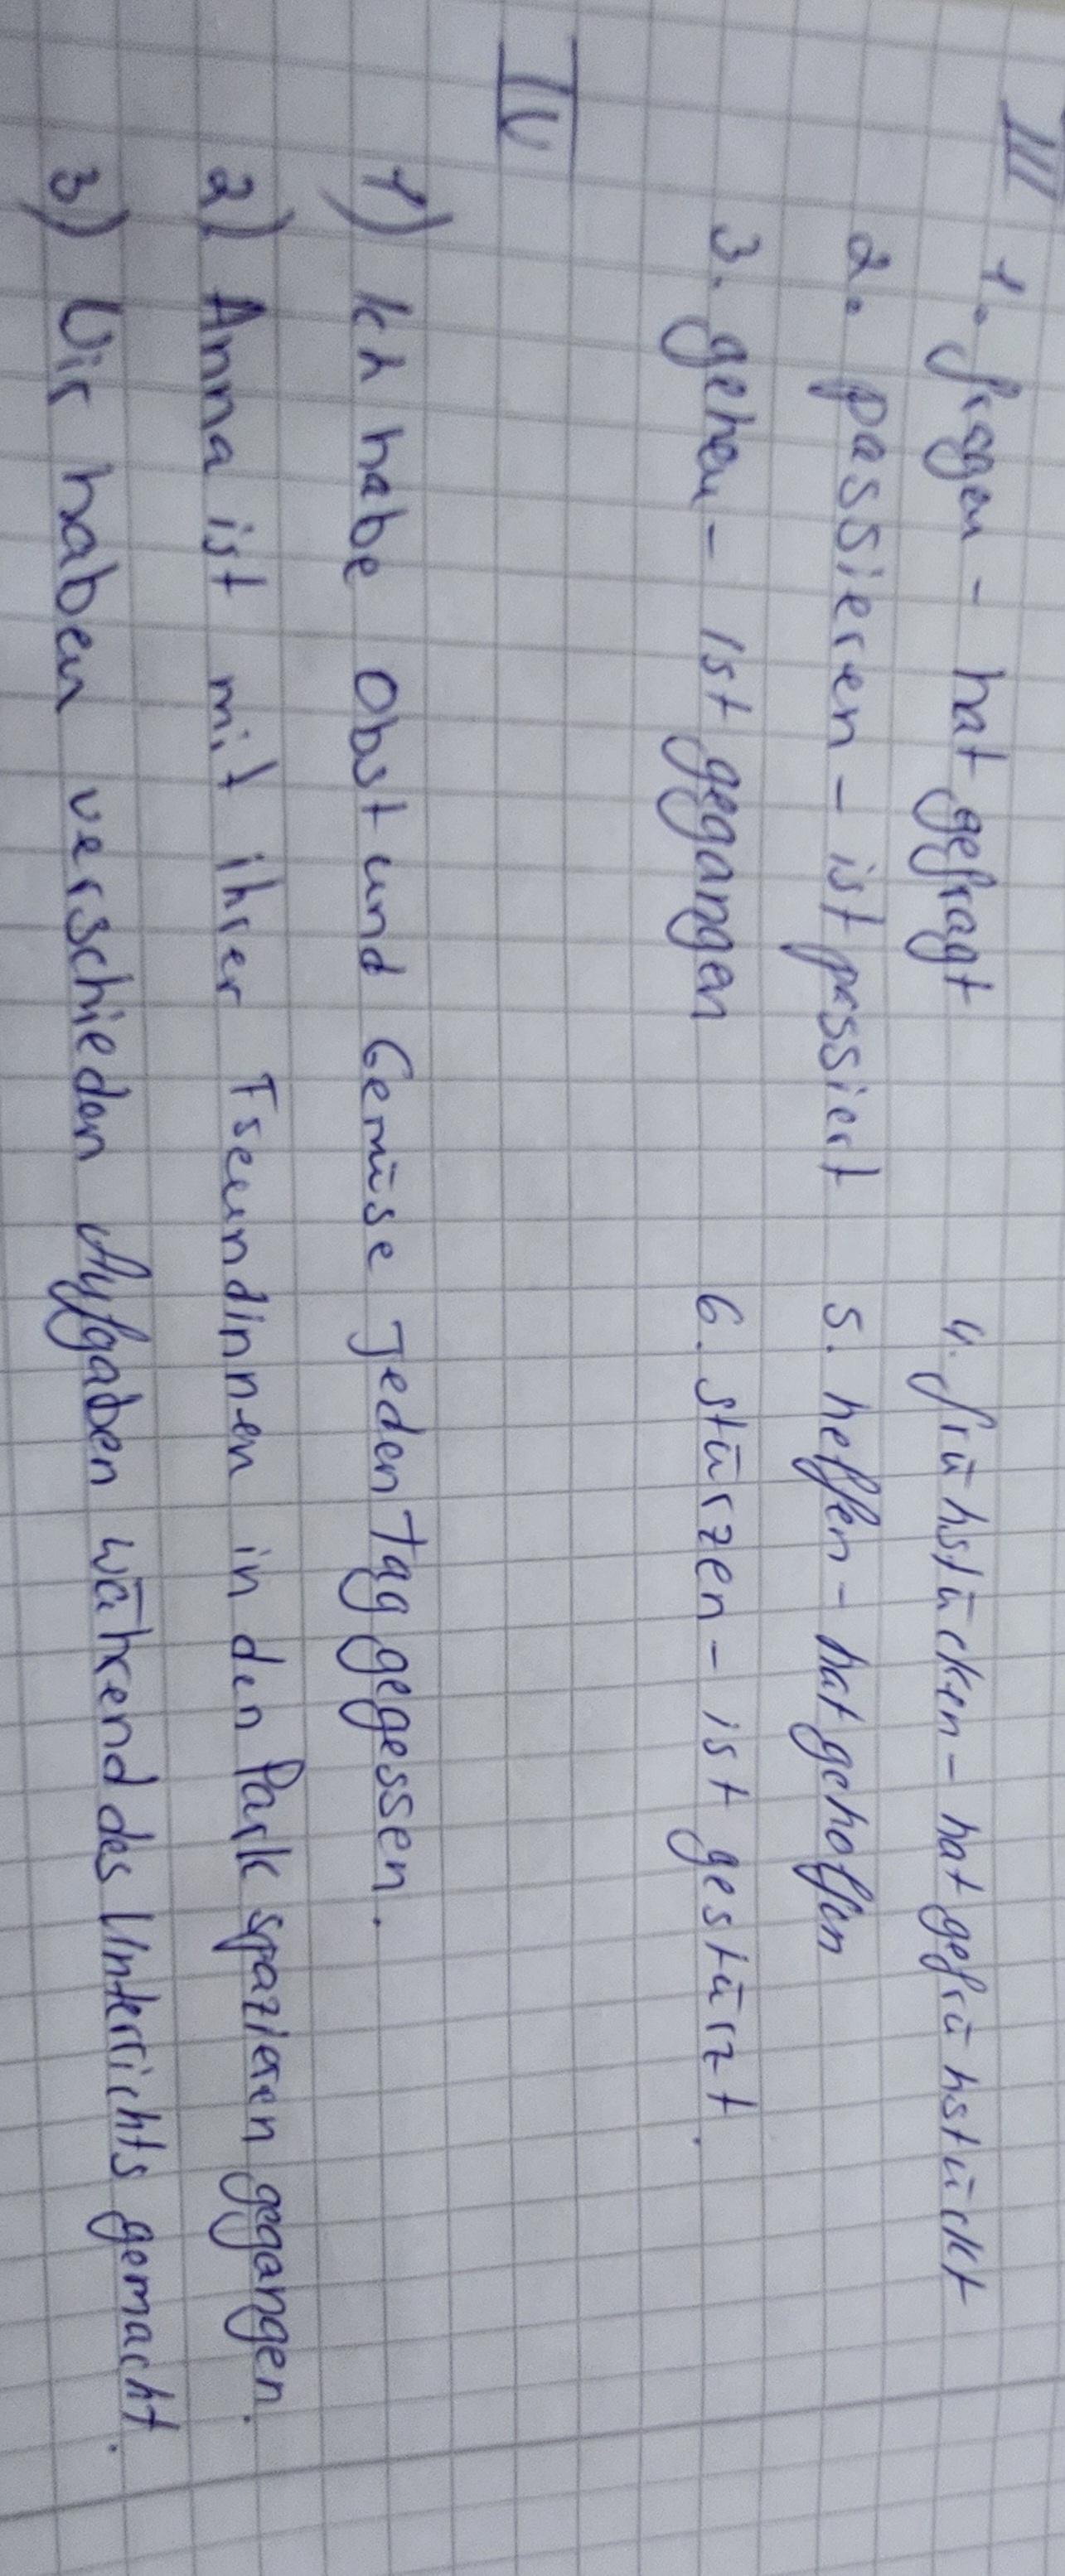 III 1. fragen - hat gefragt 4. frühstücken - hat gefrühstückt
2. passieren - ist passiert 5. helfen - hat geholfen
3. gehen - ist gegangen 6. stürzen - ist gestürzt.
IV
1) Ich habe Obst und Gemüse Jeden Tag gegessen.
2) Anna ist mit ihrer Freundinnen in den Park spazieren gegangen.
3) Wir haben verschieden Aufgaben während des Unterrichts gemacht.